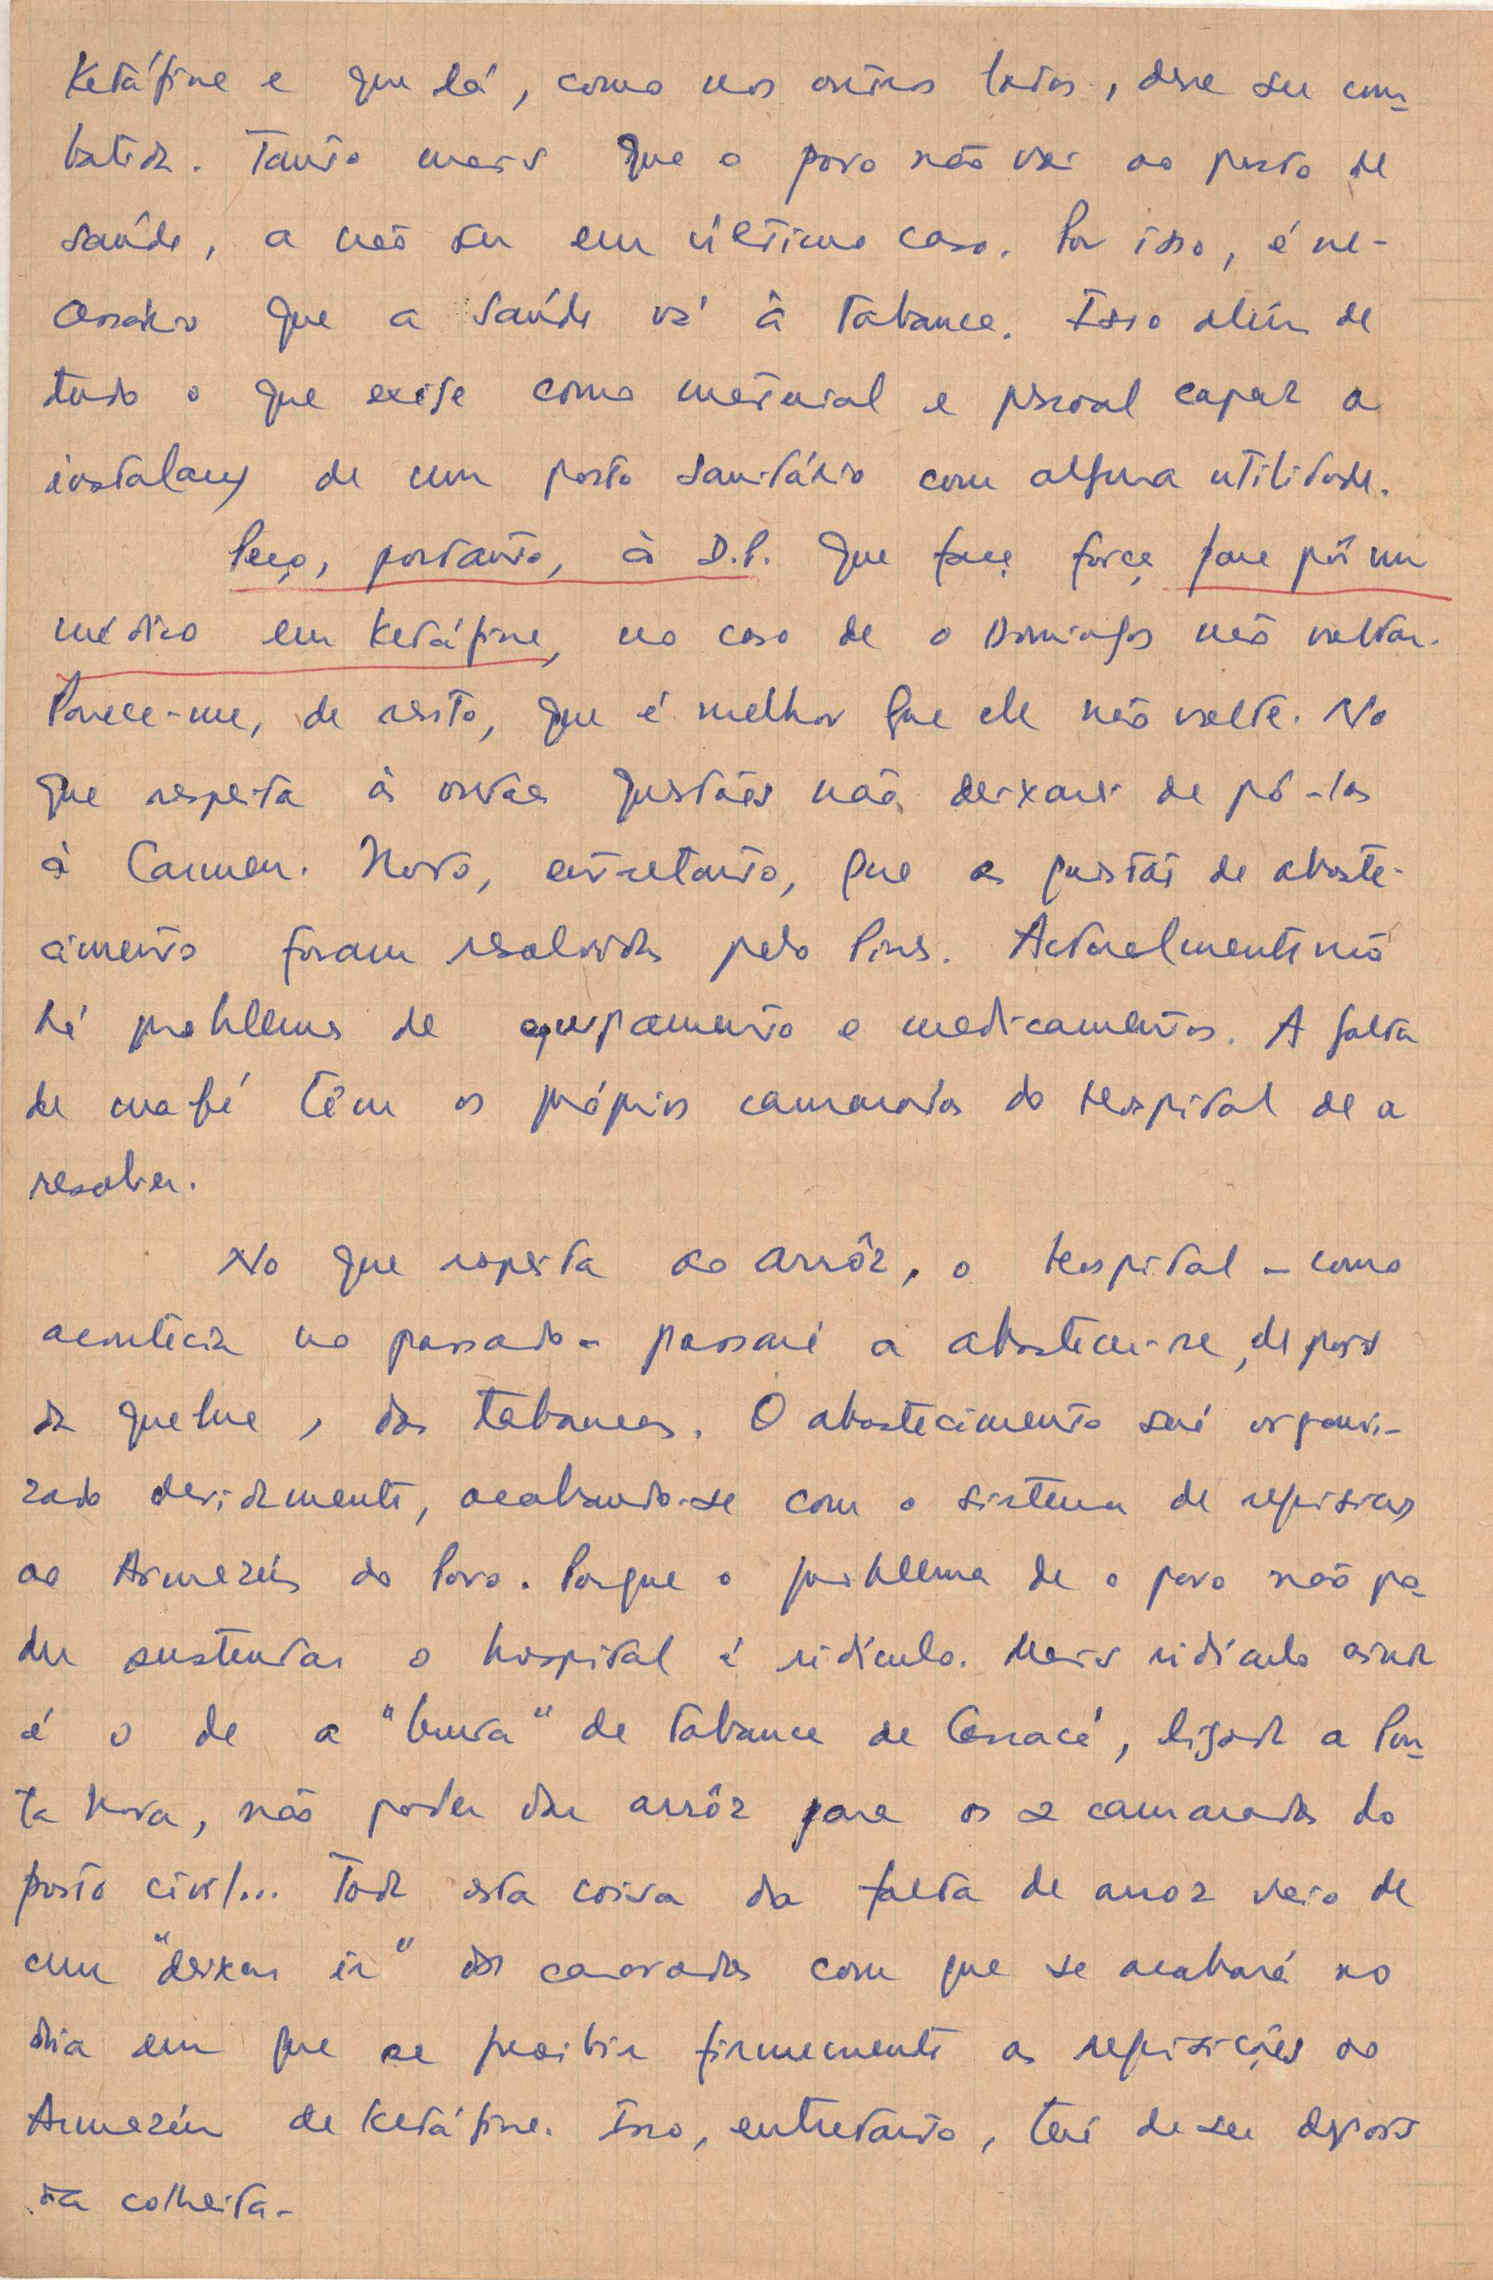 Ketáfine e que lá, como nos outros lados, deve ser com-
batida. Tanto mais que o povo não vai ao posto de
saúde, a não ser em último caso. Por isso, é ne-
cessário que a saúde vá à tabanca. Isso além de
tudo o que exige como material e pessoal capaz a
instalação de um posto sanitário com alguma utilidade.
Peço, portanto, à D.P. que faça força para pôr um
médico em Ketáfine, no caso de o Domingos não voltar.
Parece-me, de resto, que é melhor que ele não volte. No
que respeita às outras questões não deixarei de pô-las
à Carmen. Noto, entretanto, que as questões de abaste-
cimento foram resolvidas pelo Pires. Actualmente não
há problemas de equipamento e medicamentos. A falta
de mafé têm os próprios camaradas do Hospital de a
resolver.
No que respeita ao arrôz, o Hospital - como
acontecia no passado - passará a abastecer-se, depois
da quebra, das tabancas. O abastecimento será organi-
zado devidamente, acabando-se com o sistema de requisições
ao Armazém do Povo. Porque o problema de o povo não po-
der sustentar o hospital é ridículo. Mais ridículo ainda
é o de a "bura" de tabanca de Cassacá, ligada a Pon-
ta Nova, não poder dar arrôz para os 2 camaradas do
posto civil... Toda esta coisa da falta de arroz veio de
um "deixar ir" dos camaradas com que se acabará no
dia em que se proibir firmemente as requisições ao
Armazém de Ketáfine. Isso, entretanto, terá de ser depois
da colheita.